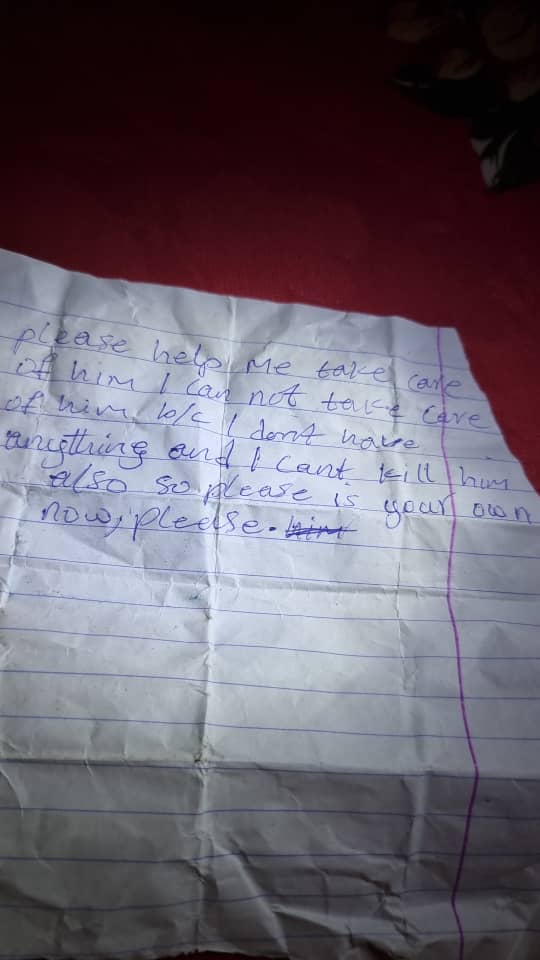 please help me take care
of him I can not take care
of him, b/c I dont have
anything and I cant kill him
also so please is your own
now, please. him